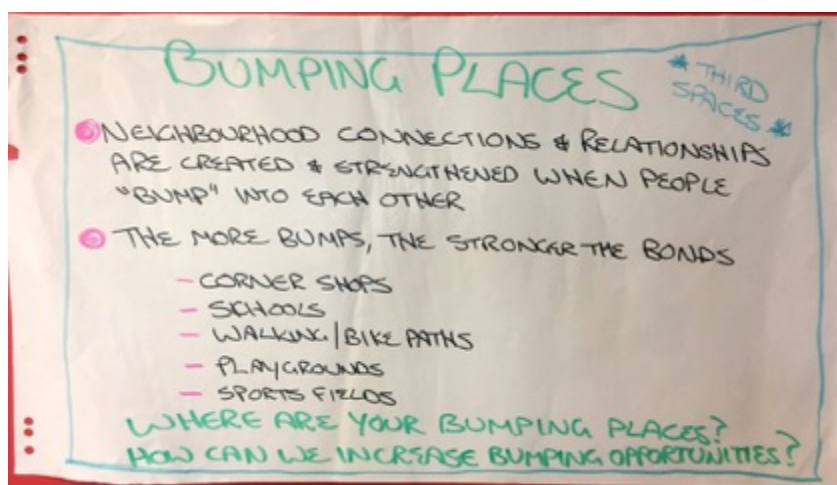 BUMPING PLACES
* THIRD
SPACES *
NEIGHBOURHOOD CONNECTIONS & RELATIONSHIPS
ARE CREATED & STRENGTHENED WHEN PEOPLE
"BUMP" INTO EACH OTHER
THE MORE BUMPS, THE STRONGER THE BONDS
- CORNER SHOPS
- SCHOOLS
- WALKING/BIKE PATHS
- PLAYGROUNDS
- SPORTS FIELDS
WHERE ARE YOUR BUMPING PLACES?
HOW CAN WE INCREASE BUMPING OPPORTUNITIES?